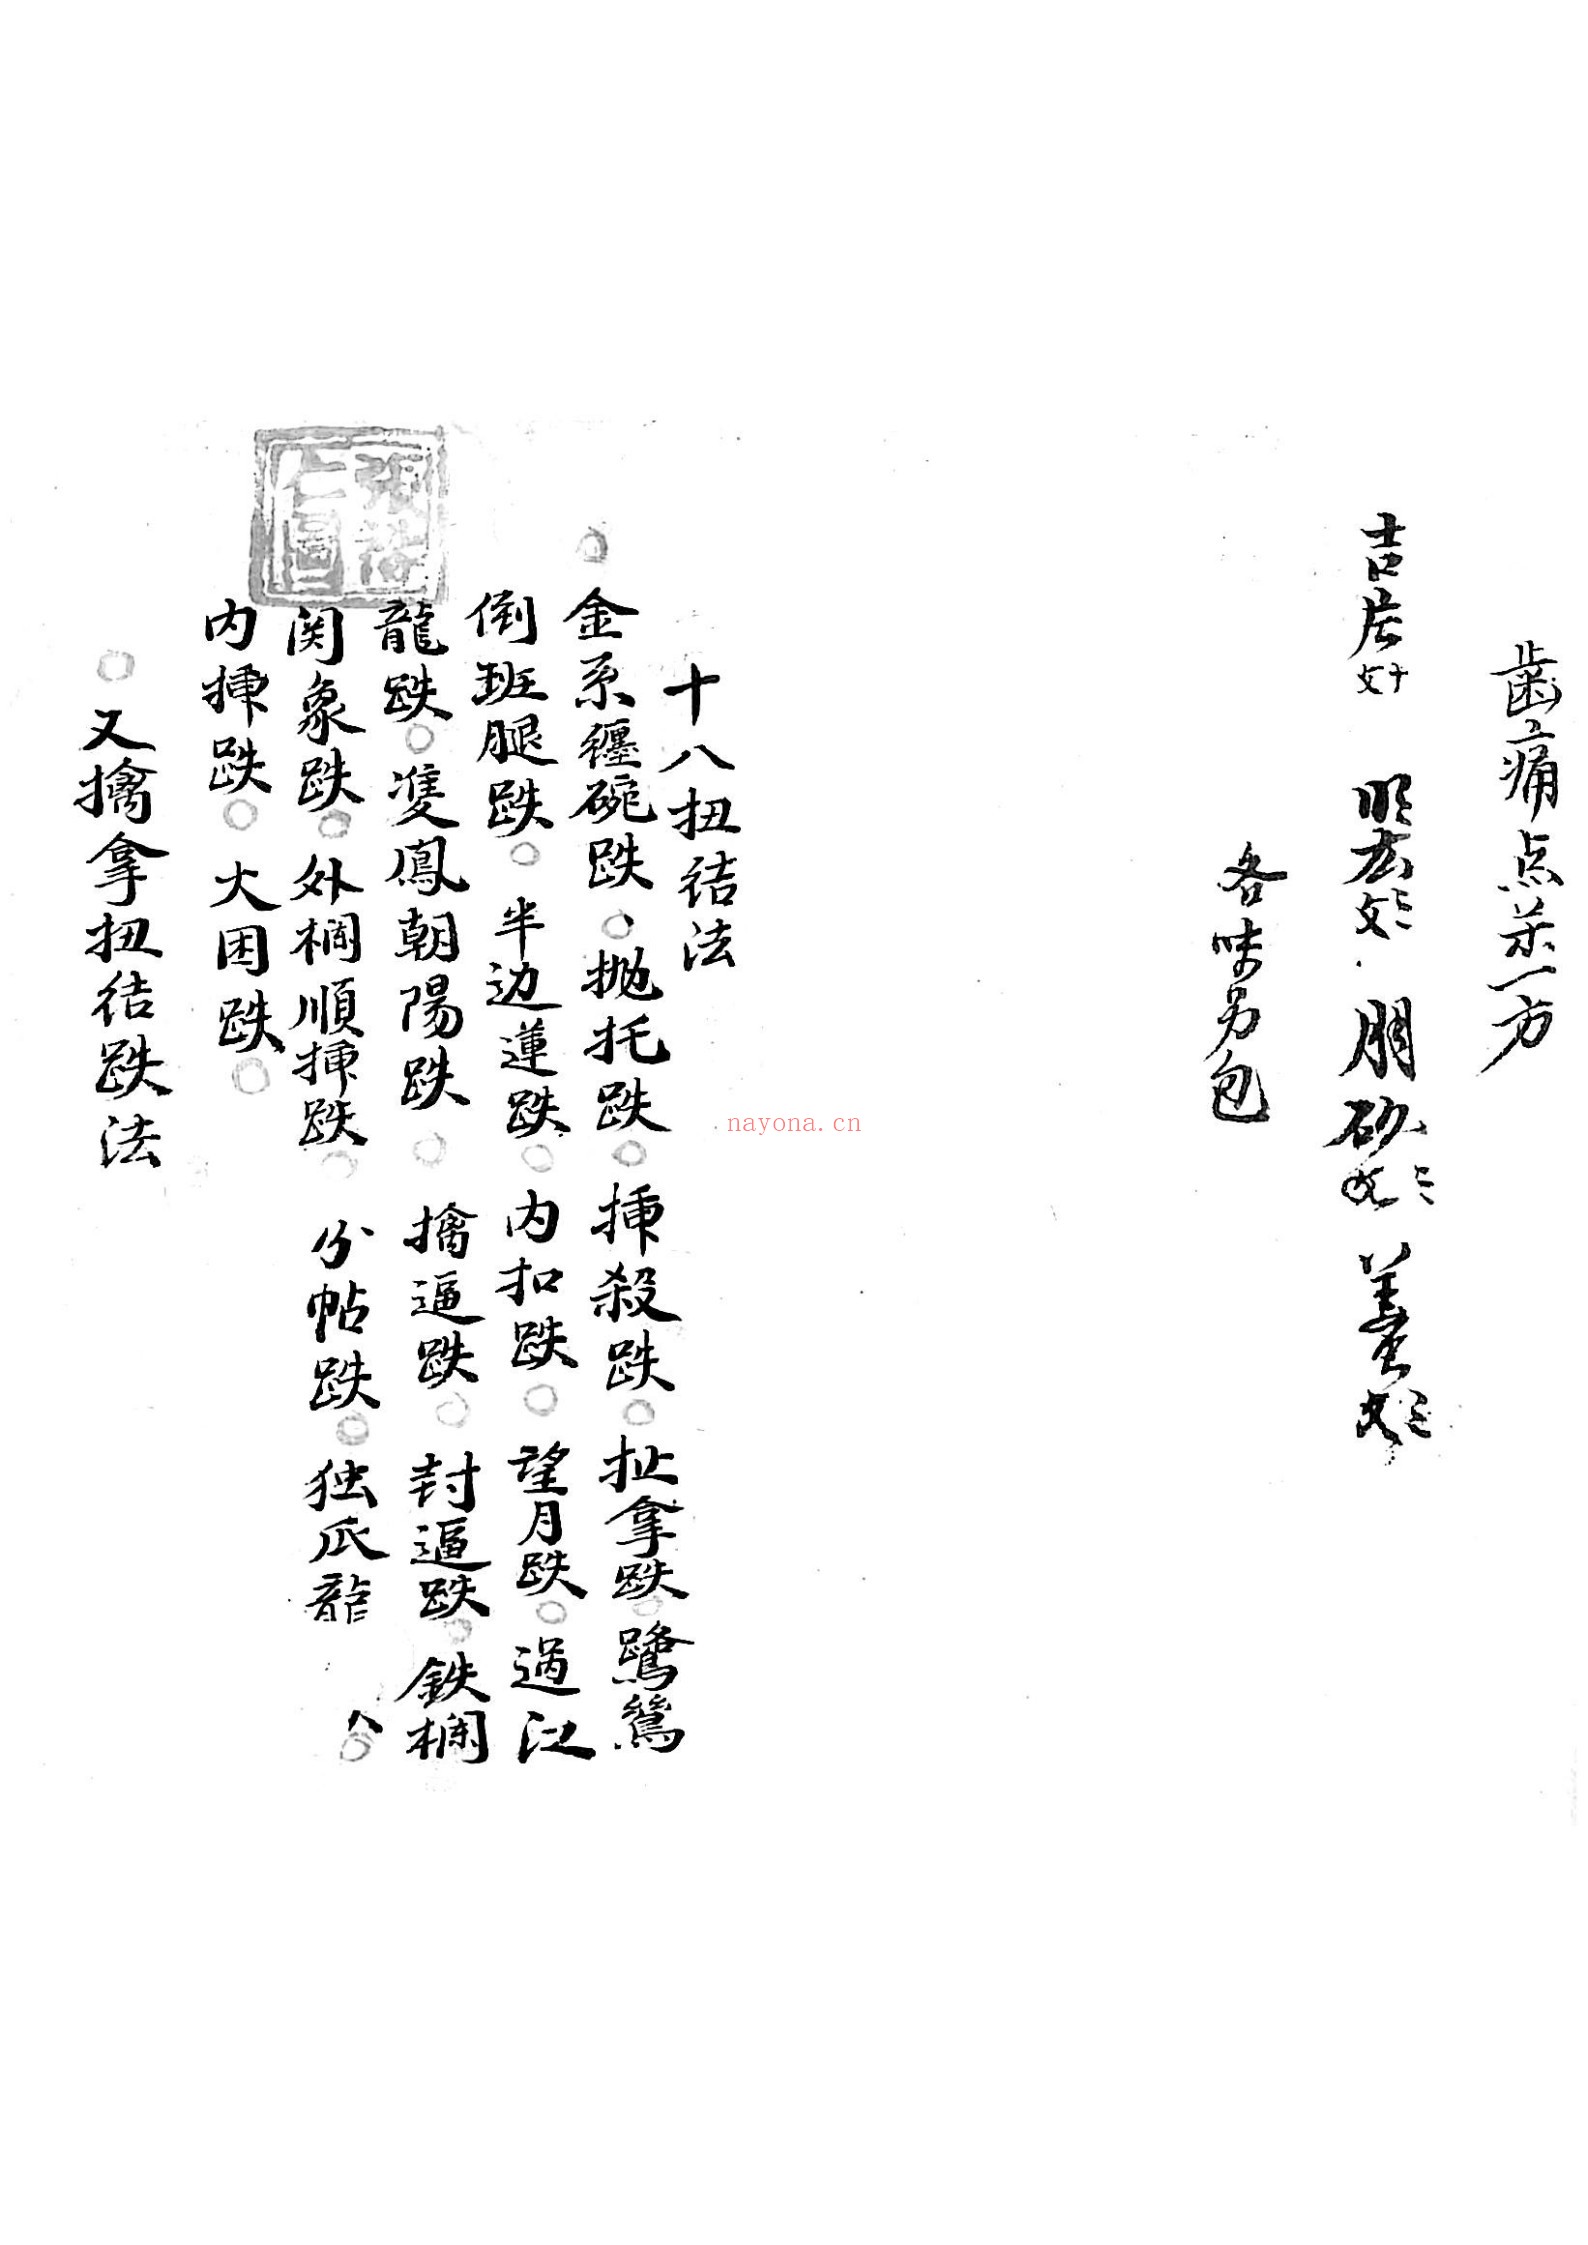 歯痛点茶一方
吉片 文十 明 文二 朋砂 文二 姜 文二
各味另包
十八扭结法
金系纏碗跌 抛托跌 挿殺跌 扯拿跌 鷺鶯
倒班腿跌 半边蓮跌 内扣跌 望月跌 過江
龍跌 隻鳳朝陽跌 擒逼跌 封逼跌 鉄欄
関象跌 外欄順挿跌 分帖跌 独爪龍
内挿跌 大困跌
又擒拿扭结跌法
nayona.cn